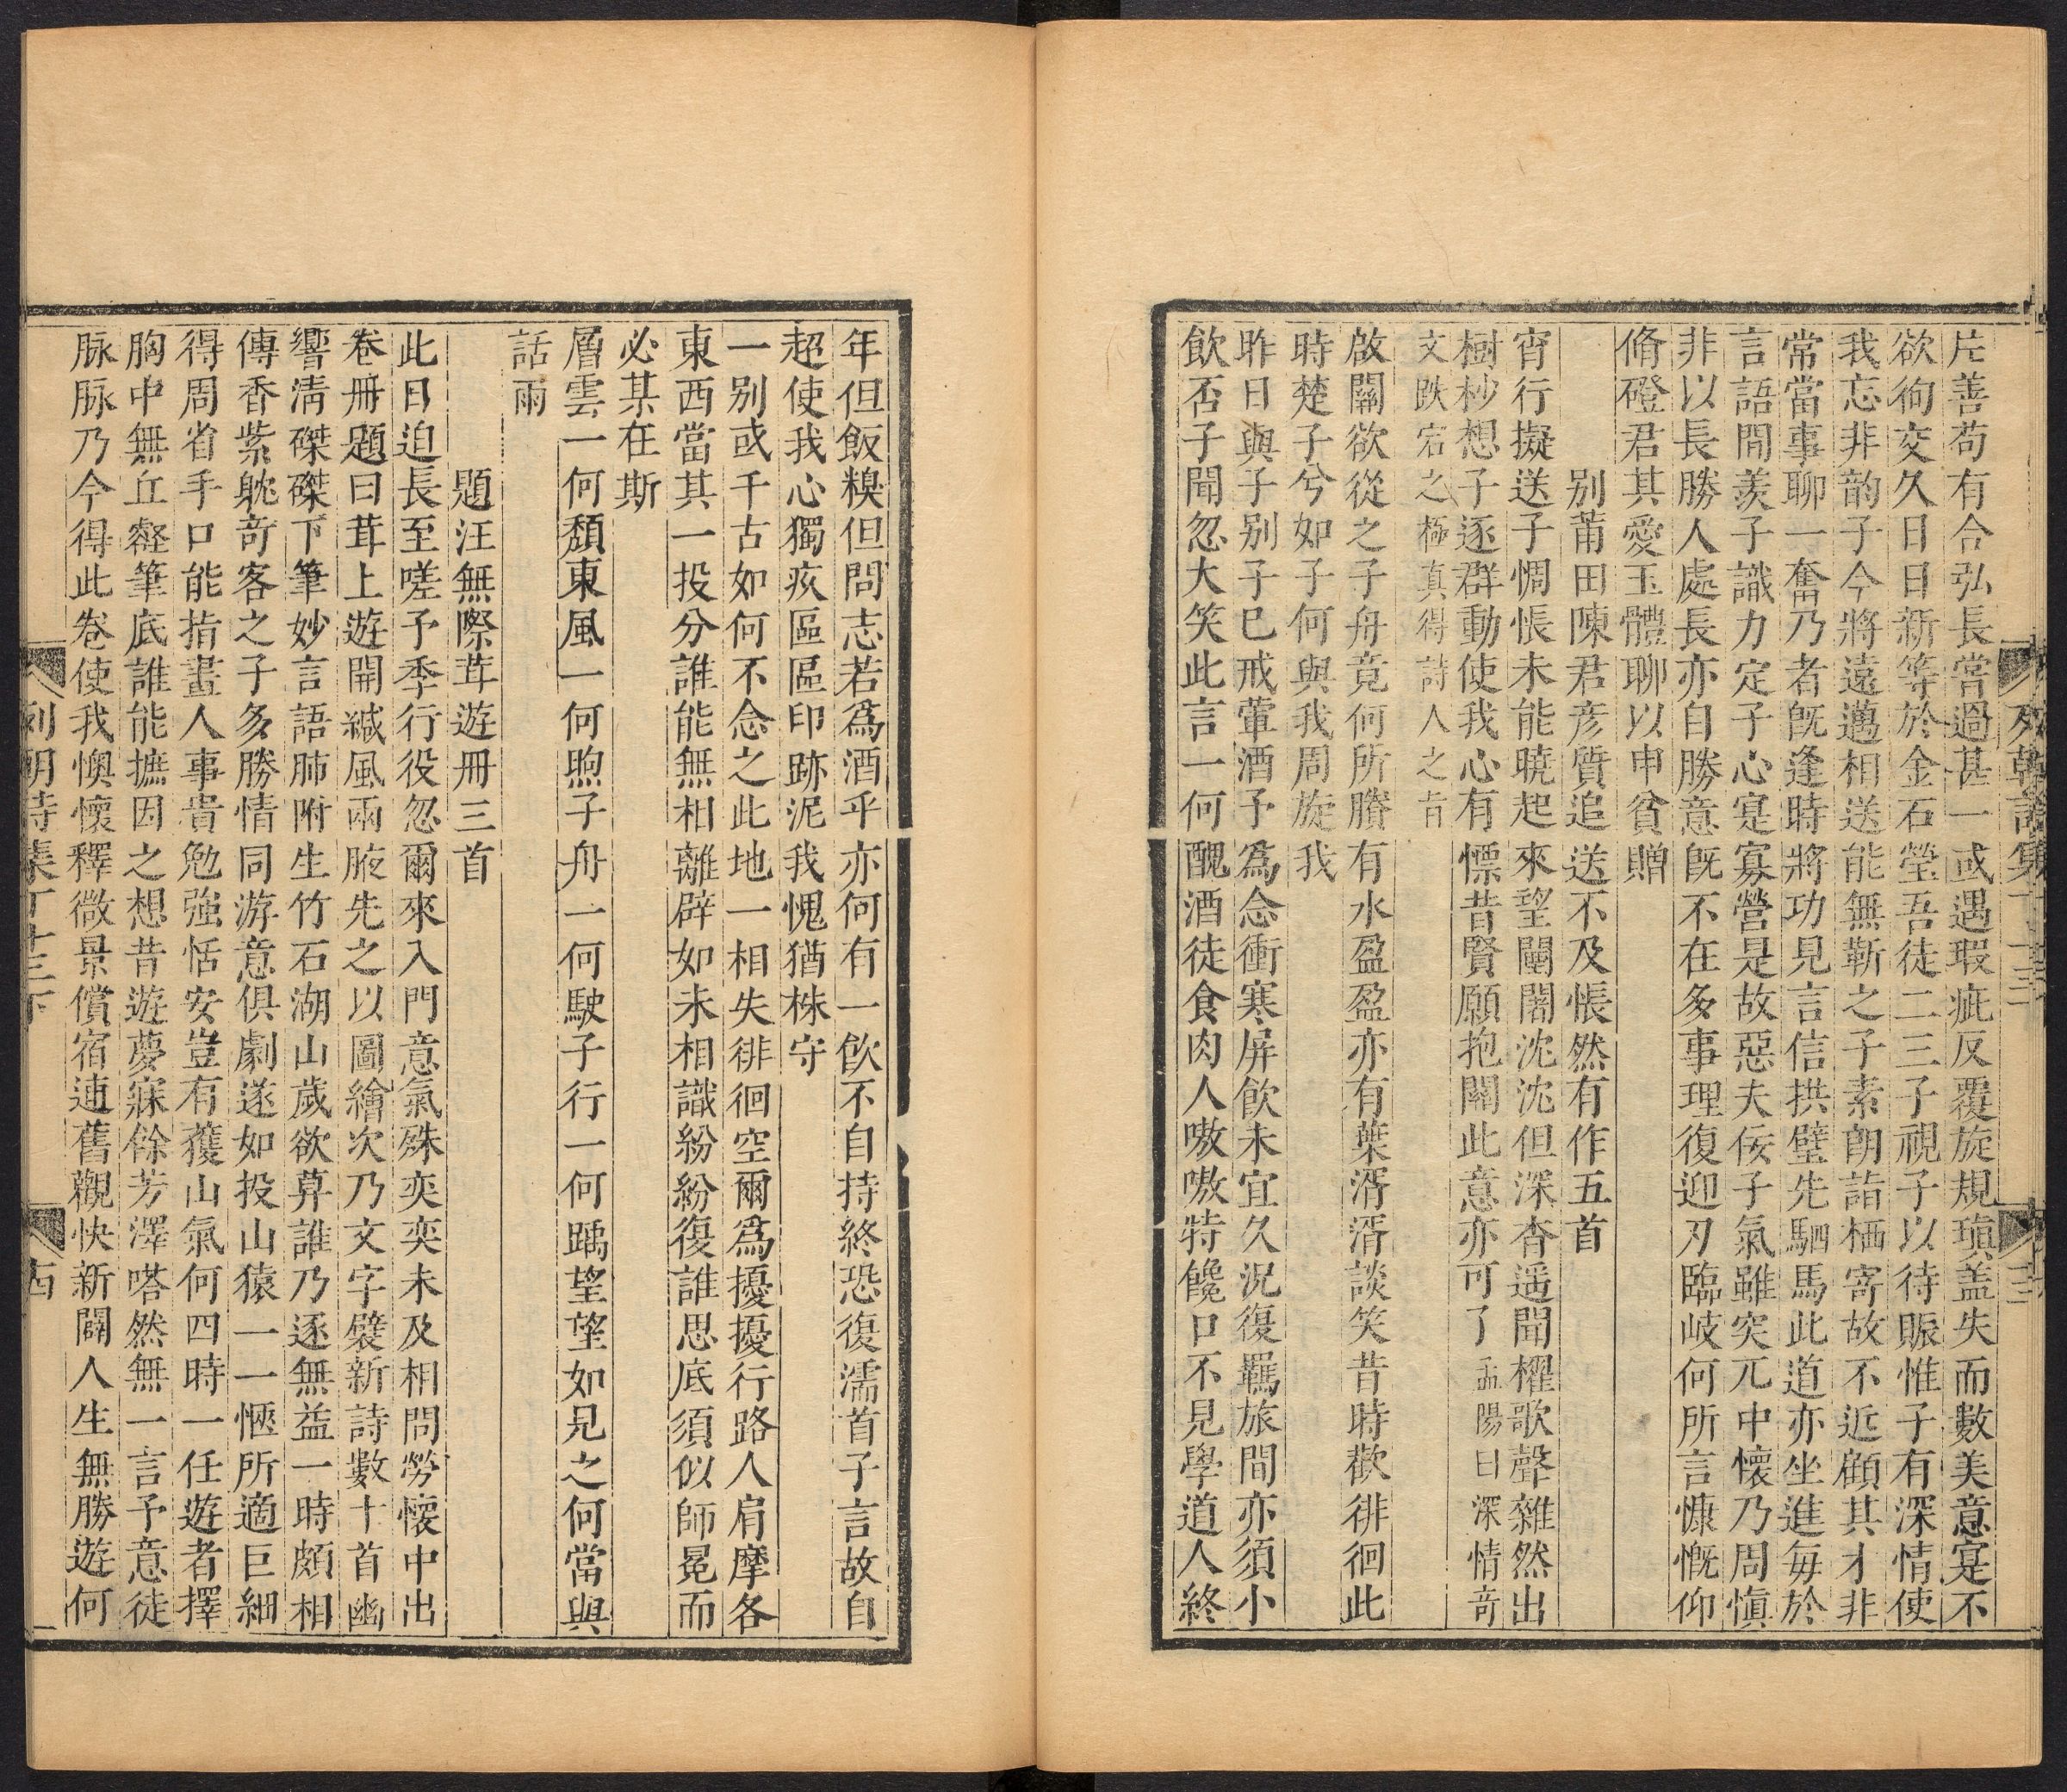 片善苟有合弘長嘗過甚一或遇瑕疵反覆旋規瑱盖失而數美意寔不
欲徇交久日日新等於金石瑩吾徒二三子視子以待賑惟子有深情使
我忘非韵子今將遠邁相送能無靳之子素朗詣栖寄故不近顧其才非
常當事聊一奮乃者旣逢時將功見言信拱璧先駟馬此道亦坐進每於
言語間羨子識力定子心寔寡營是故惡夫佞子氣雖突兀中懷乃周愼
非以長勝人處長亦自勝意旣不在多事理復迎刃臨岐何所言慷慨仰
脩磴君其愛玉體聊以申貧贈
別莆田陳君彥質追送不及悵然有作五首
宵行擬送子惆悵未能曉起來望闉闍沈沈但深杳遥聞櫂歌聲雜然出
樹杪想子逐群動使我心有慓昔賢願抱關此意亦可了孟陽曰深情奇
文跌宕之極真得詩人之旨
啟關欲從之子舟竟何所賸有水盈盈亦有葉湑湑談笑昔時歡徘徊此
時楚子兮如子何與我周旋我
昨日與子別子已戒葷酒予爲念衝寒屏飲未宜久況復羈旅間亦須小
飲否子聞忽大笑此言一何醜酒徒食肉人嗷嗷特饞口不見學道人終
年但飯糗但問志若爲酒乎亦何有一飲不自持終恐復濡首子言故自
超使我心獨疚區區印跡泥我愧猶株守
一別或千古如何不念之此地一相失徘徊空爾爲擾擾行路人肩摩各
東西當其一投分誰能無相離辟如未相識紛紛復誰思底須似師冕而
必某在斯
層雲一何頹東風一何煦子舟一何駛子行一何踽望望如見之何當與
話雨
題汪無際茸遊冊三首
此日迫長至嗟予季行役忽爾來入門意氣殊奕奕未及相問勞懷中出
卷冊題曰茸上遊開緘風雨腋先之以圖繪次乃文字襞新詩數十首幽
響淸磔磔下筆妙言語肺附生竹石湖山歲欲算誰乃逐無益一時頗相
傳香紫躭奇客之子多勝情同游意俱劇遂如投山猿一一愜所適巨細
得周省手口能指畫人事貴勉強恬安豈有獲山氣何四時一任遊者擇
胸中無丘壑筆底誰能摭因之想昔遊夢寐餘芳澤嗒然無一言予意徒
脉脉乃今得此卷使我懊懷釋微景償宿逋舊觀快新闢人生無勝遊何
列朝詩集丁十三下